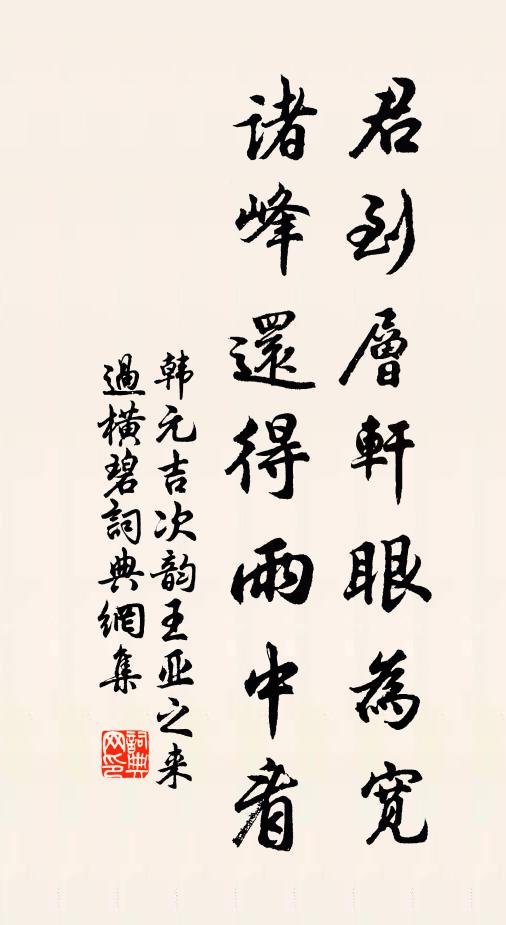 君到層軒眼為寬
諸峰還得雨中看
韩元吉次韵王亚之来
過橫碧詞典網集
詞典網印